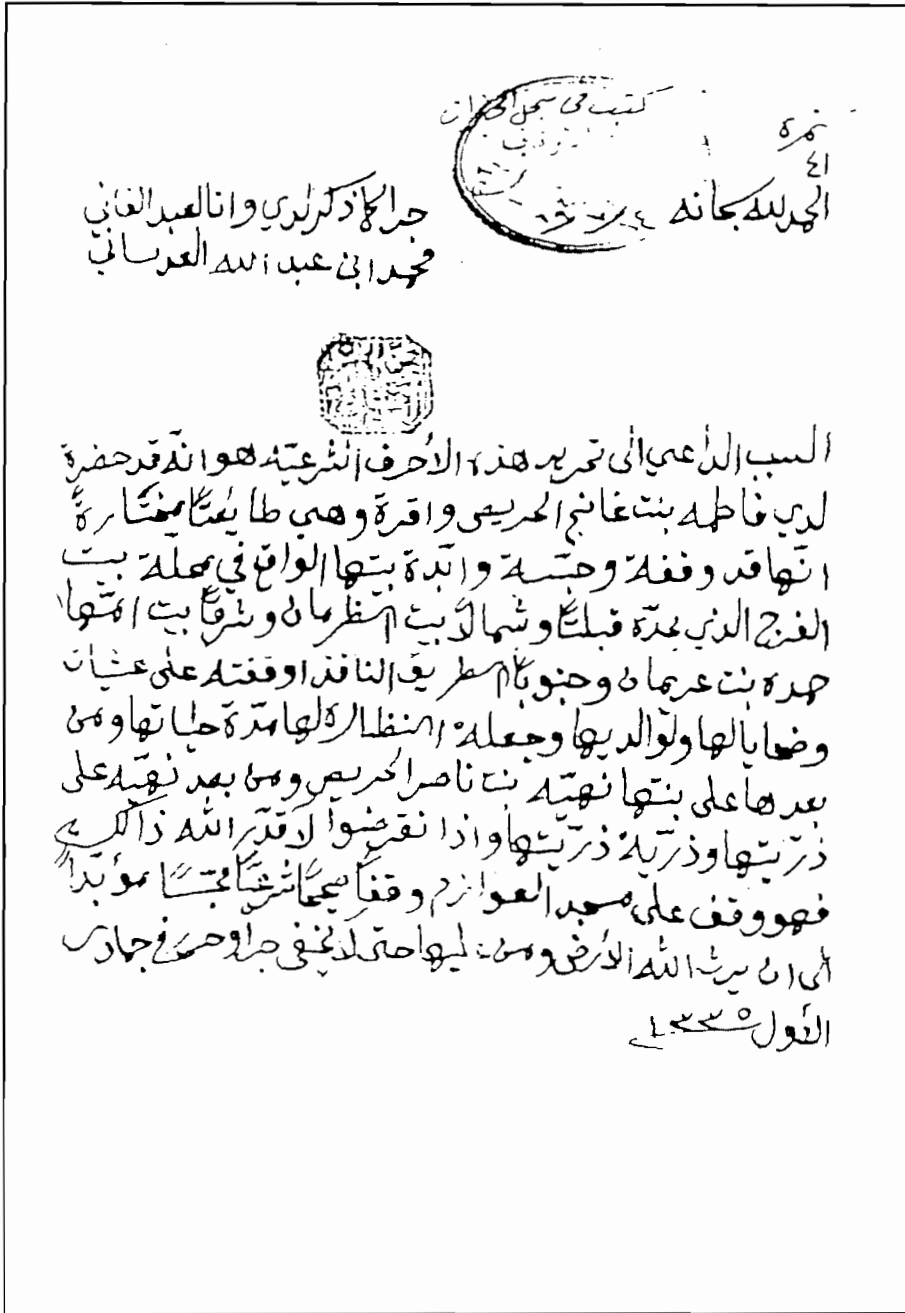 نمرة
٤١
كتبت في سجل
الحمد لله سبحانه
جرا كما ذكر لدي وانا العبد الفاني
محمد ابن عبد الله العدساني
السبب الداعي الى تحرير هذه الأحرف الشرعيّه هو انّه قد حضرة
لدي فاطمه بنت غانم الحريص واقرة وهي طايعتاً مختارةً
انّها قد وقفة وحبّسة وابّدة بيتها الواقع في محلّة بيت
الفرج الذي يحدّه قبلتاً وشمالاً بيت وشرقاً بيت امّها
حمده بنت عريمان وجنوباً الطريق النافذ اوقفته على عشيات
وضحايا لها ولوالديها وجعلة النظاره لها مدّة حياتها ومن
بعدها على بنتها نهيّه بنت ناصر الحريص ومن بعد نهيّه على
ذرّيتها وذرّية ذرّيتها واذا نقرضوا لا قدّر الله ذالك
فهو وقف على مسجد العوازم وقفاً صحيحاً شرعيّاً محبّسًا مؤبّداً
الى ان يرث الله الأرض ومن عليها حتى لا يخفى جرا وحرر في جمادى
الأول ١٣٣٥